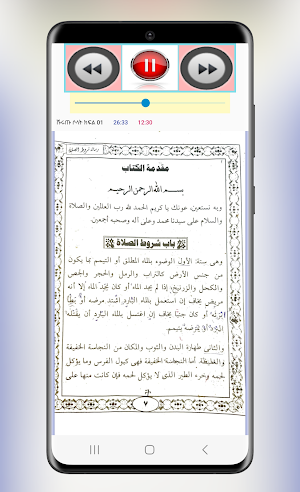 ሹሩጡ ሶላት ክፍል 01 26:33 12:30
مقدمة الكتاب
بسم الله الرحمن الرحيم
وبه نستعين عونك يا كريم الحمد لله رب العالمين والصلاة
والسلام على سيدنا محمد وعلى آله وصحبه أجمعين.
باب شروط الصلاة
وهي ستة: الأول الوضوء بالماء المطلق أو التيمم بما يكون
من جنس الأرض كالتراب والرمل والحجر والجص
والكحل والزرنيخ، إذا لم يجد الماء أو كان يجد الماء إلا أنه
مريض يخاف إن استعمل بالماء البارد اشتد مرضه أو
أو كان جنبًا يخاف إن اغتسل بالماء البارد أن يقتله
البرد أو يمرضه يتيمم.
والثاني طهارة البدن والثوب والمكان من النجاسة الخفيفة
والغليظة. أما النجاسة الخفيفة فهي كبول الفرس وما يؤكل
لحمه وخرء الطير الذي لا يؤكل لحمه فإن كانت منها على
٧